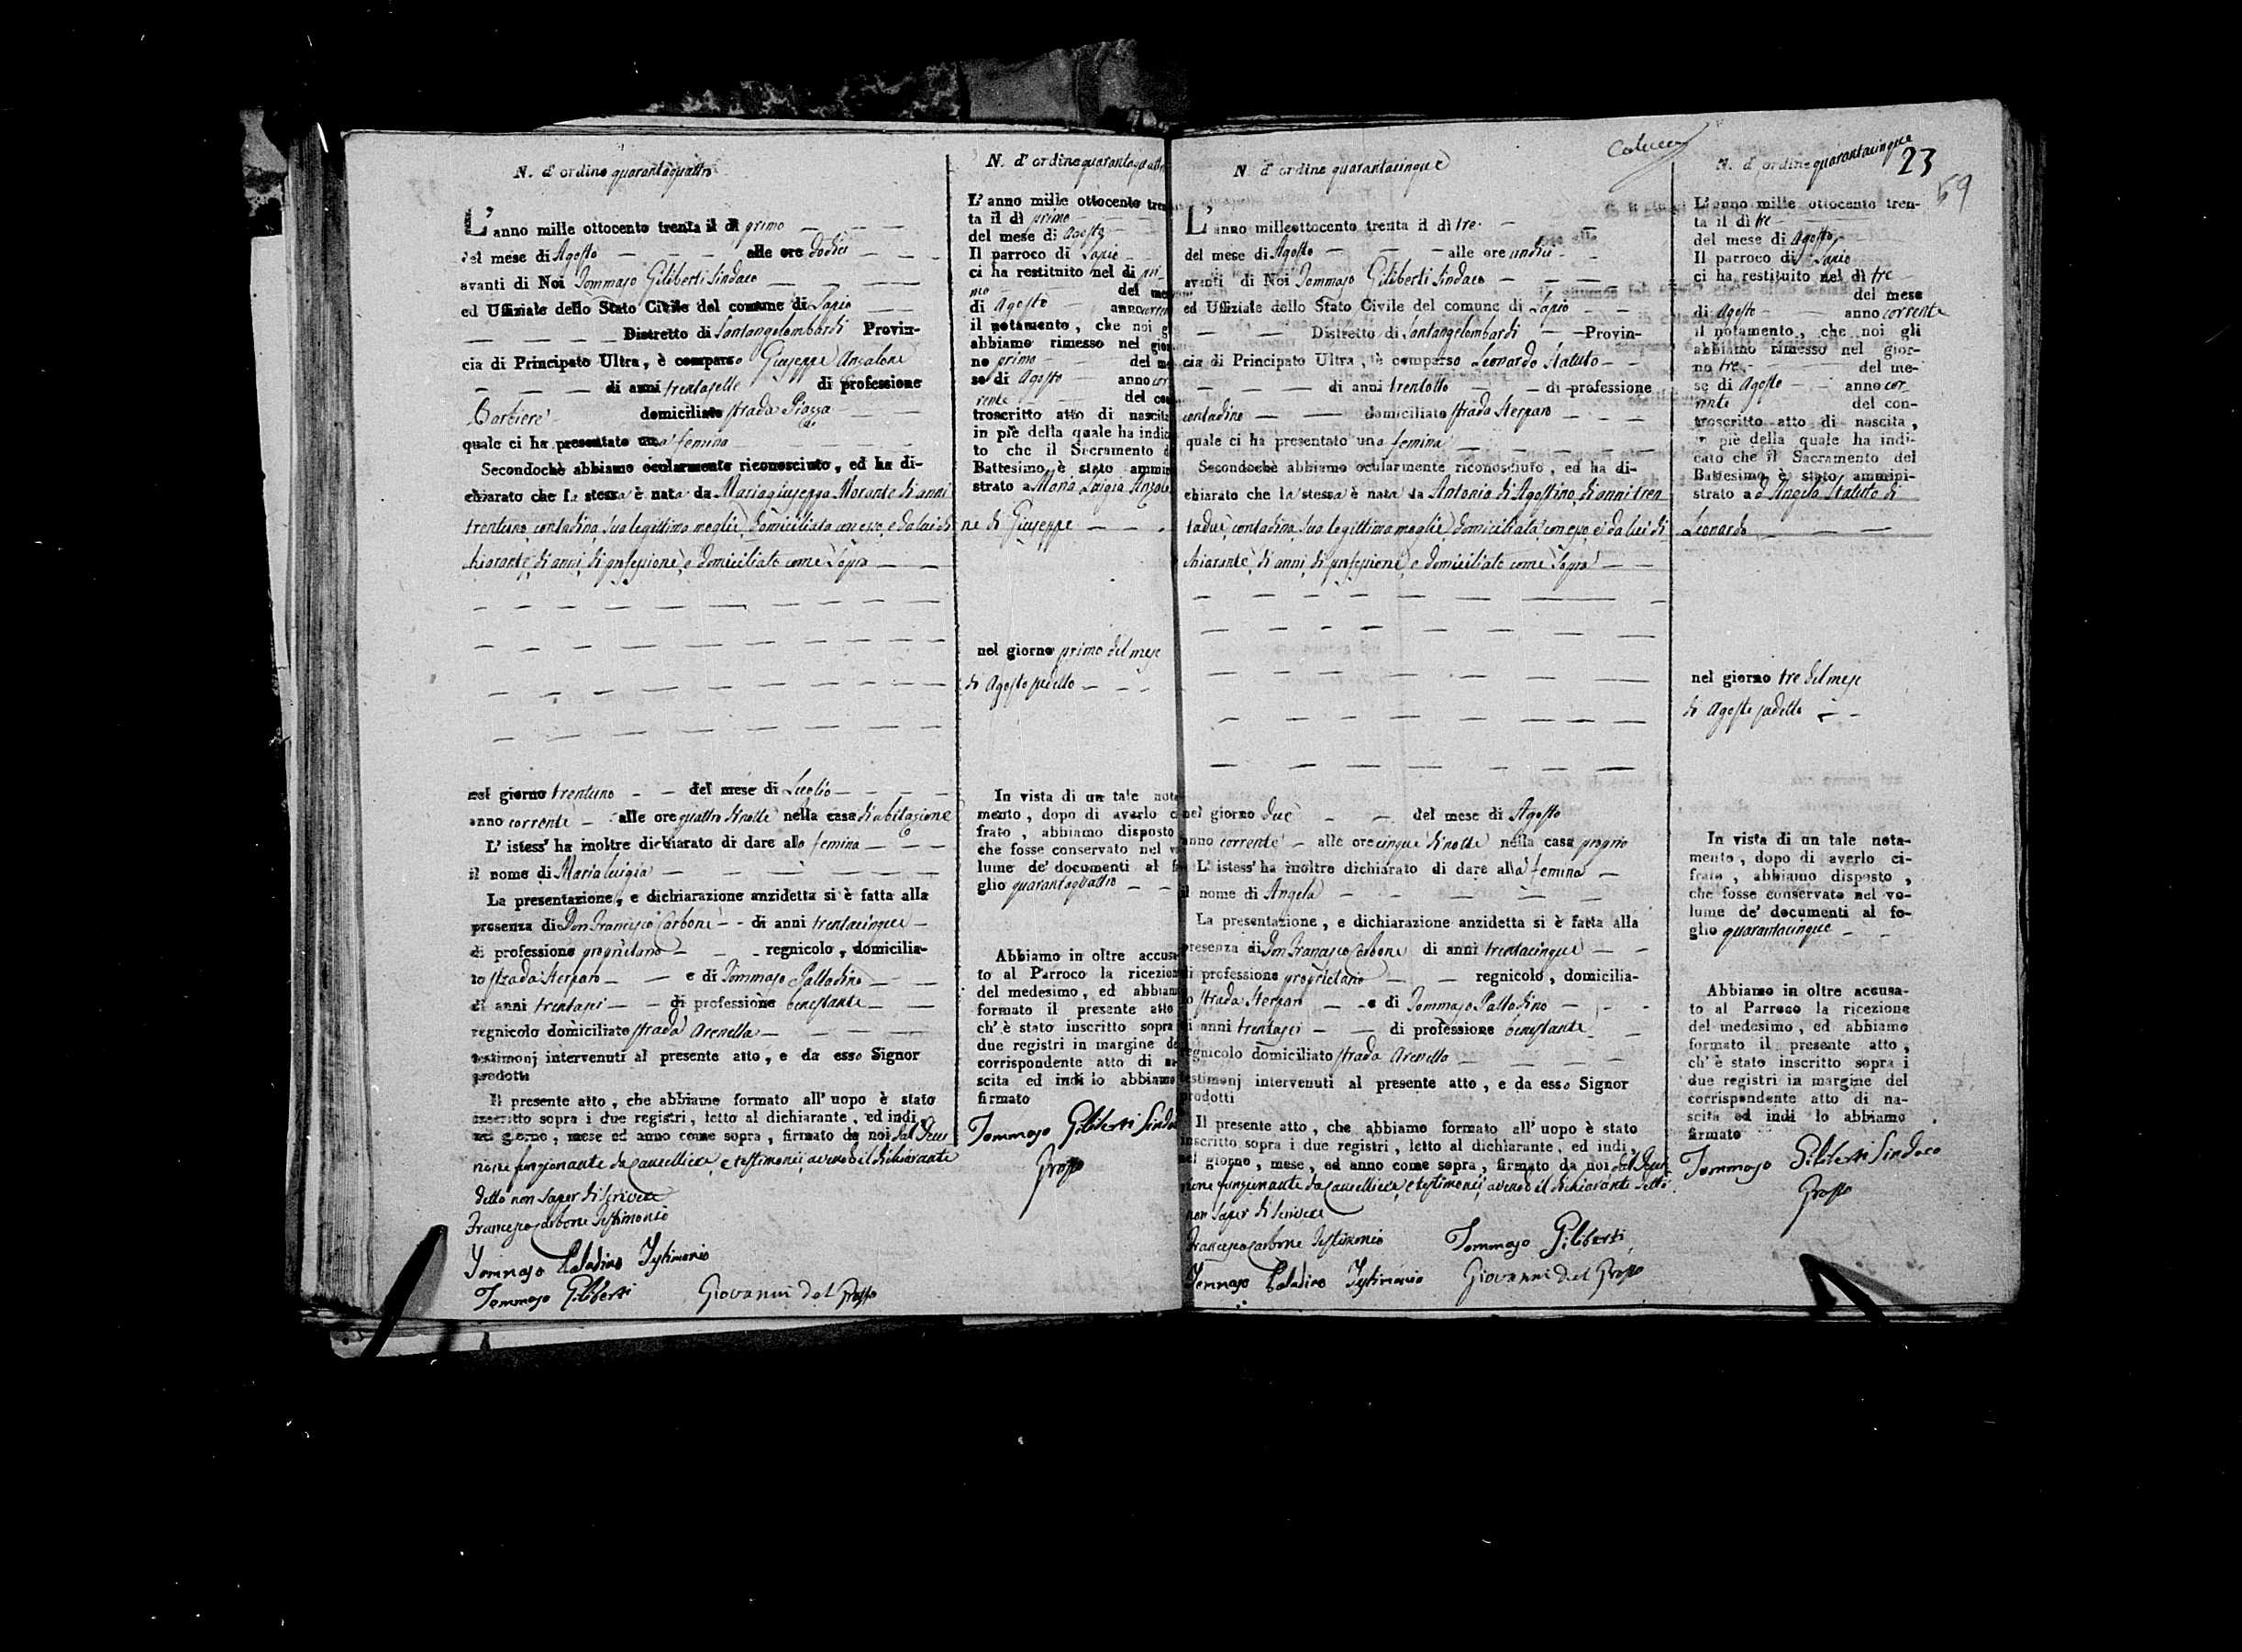 N. d' ordine quarantaquattro
L' anno mille ottocento trenta il dì primo
del mese di Agosto alle ore dodici
avanti di Noi Tommaso Giliberti Sindaco
ed Uffiziale dello Stato Civile del comune di Lapio
Distretto di Santangelombardi Provin-
cia di Principato Ultra, è comparso Giuseppe Anzalone
di anni trentasette di professione
Barbiere domiciliato strada Piazza
quale ci ha presentato una femina
Secondochè abbiamo ocularmente riconosciuto, ed ha di-
chiarato che la stessa è nata da Mariagiuseppa Morante di anni
trentuno, contadina, sua legittima moglie, domiciliata con esso, e da lui di
chiarante, di anni, di professione, e domiciliato come sopra
nel giorno trentuno del mese di Luglio
anno corrente alle ore quattro di notte nella casa di abitazione
L' istess' ha inoltre dichiarato di dare alla femina
il nome di Maria Luigia
La presentazione, e dichiarazione anzidetta si è fatta alla
presenza di Don Francesco Carbone di anni trentacinque
di professione proprietario regnicolo, domicilia-
to strada Sterparo e di Tommaso Palladino
di anni trentasei di professione benestante
regnicolo domiciliato strada Arenella
testimonj intervenuti al presente atto, e da esso Signor
prodotti
Il presente atto, che abbiamo formato all' uopo è stato
inscritto sopra i due registri, letto al dichiarante, ed indi,
nel giorno, mese ed anno come sopra, firmato da noi dal Decu
rione funzionante da Cancelliere, e testimonii, avendo il dichiarante
detto non saper di scrivere
Francesco Carbone Testimonio
Tommaso Paladino Testimonio
Tommaso Giliberti Giovanni del Grosso
N. d' ordine quarantaquattro
L' anno mille ottocento tren
ta il dì primo
del mese di Agosto
Il parroco di Lapio
ci ha restituito nel di pri
mo del mese
di Agosto anno corren
il notamento, che noi g
abbiamo rimesso nel gior
no primo del me
se di Agosto anno cor
rente del con
troscritto atto di nascita
in piè della quale ha indic
to che il Sacramento d
Battesimo è stato ammin
strato a Maria Luigia Anzalo
ne di Giuseppe
nel giorno primo del mese
di Agosto sudetto
In vista di un tale nota
mento, dopo di averlo c
frato, abbiamo disposto
che fosse conservato nel v
lume de' documenti al fo
glio quarantaquattro
Abbiamo in oltre accusa
to al Parroco la ricezion
del medesimo, ed abbiam
formato il presente atto
ch' è stato inscritto sopra
due registri in margine de
corrispondente atto di na
scita ed indi lo abbiamo
firmato
Tommaso Giliberti Sindaco
Grosso
N. d' ordine quarantacinque
L' anno milleottocento trenta il dì tre
del mese di Agosto alle ore undici
avanti di Noi Tommaso Giliberti Sindaco
ed Uffiziale dello Stato Civile del comune di Lapio
Distretto di Santangelombardi Provin-
cia di Principato Ultra, è comparso Leonardo Statuto
di anni trentotto di professione
contadino domiciliato strada Sterparo
quale ci ha presentato una femina
Secondochè abbiamo ocularmente riconosciuto, ed ha di-
chiarato che la stessa è nata da Antonia di Agostino, di anni tren
tadue, contadina, sua legittima moglie, domiciliata con esso, e da lui di
chiarante, di anni, di professione, e domiciliato come sopra
nel giorno due del mese di Agosto
anno corrente alle ore cinque di notte nella casa propria
L' istess' ha inoltre dichiarato di dare alla femina
il nome di Angela
La presentazione, e dichiarazione anzidetta si è fatta alla
presenza di Don Francesco Carbone di anni trentacinque
di professione proprietario regnicolo, domicilia-
to strada Sterparo e di Tommaso Palladino
di anni trentasei di professione benestante
regnicolo domiciliato strada Arenella
testimonj intervenuti al presente atto, e da esso Signor
prodotti
Il presente atto, che abbiamo formato all' uopo è stato
inscritto sopra i due registri, letto al dichiarante, ed indi,
nel giorno, mese, ed anno come sopra, firmato da noi dal Decu
rione funzionante da Cancelliere, e testimonii, avendo il dichiarante detto
non saper di scrivere
Francesco Carbone Testimonio Tommaso Giliberti
Tommaso Paladino Testimonio Giovanni del Grosso
23
59
N. d' ordine quarantacinque
L' anno mille ottocento tren-
ta il dì tre
del mese di Agosto
Il parroco di Lapio
ci ha restituito nel dì tre
del mese
di Agosto anno corrente
il notamento, che noi gli
abbiamo rimesso nel gior-
no tre del me-
se di Agosto anno cor
rente del con-
troscritto atto di nascita,
in piè della quale ha indi-
cato che il Sacramento del
Battesimo è stato ammini-
strato a d Angela Statuto di
Leonardo
nel giorno tre del mese
di Agosto sudetto
In vista di un tale nota-
mento, dopo di averlo ci-
frato, abbiamo disposto,
che fosse conservato nel vo-
lume de' documenti al fo-
glio quarantacinque
Abbiamo in oltre accusa-
to al Parroco la ricezione
del medesimo, ed abbiamo
formato il presente atto,
ch' è stato inscritto sopra i
due registri in margine del
corrispondente atto di na-
scita ed indi lo abbiamo
firmato
Tommaso Giliberti Sindaco
Grosso